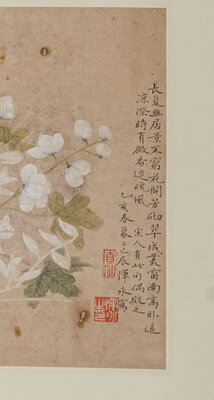 長夏幽居景不窮花開芳砌翠成叢窗南高卧追
涼際時有微香逗晚風 宋人有此句偶題之
乙亥春暮上巳辰惲冰寫